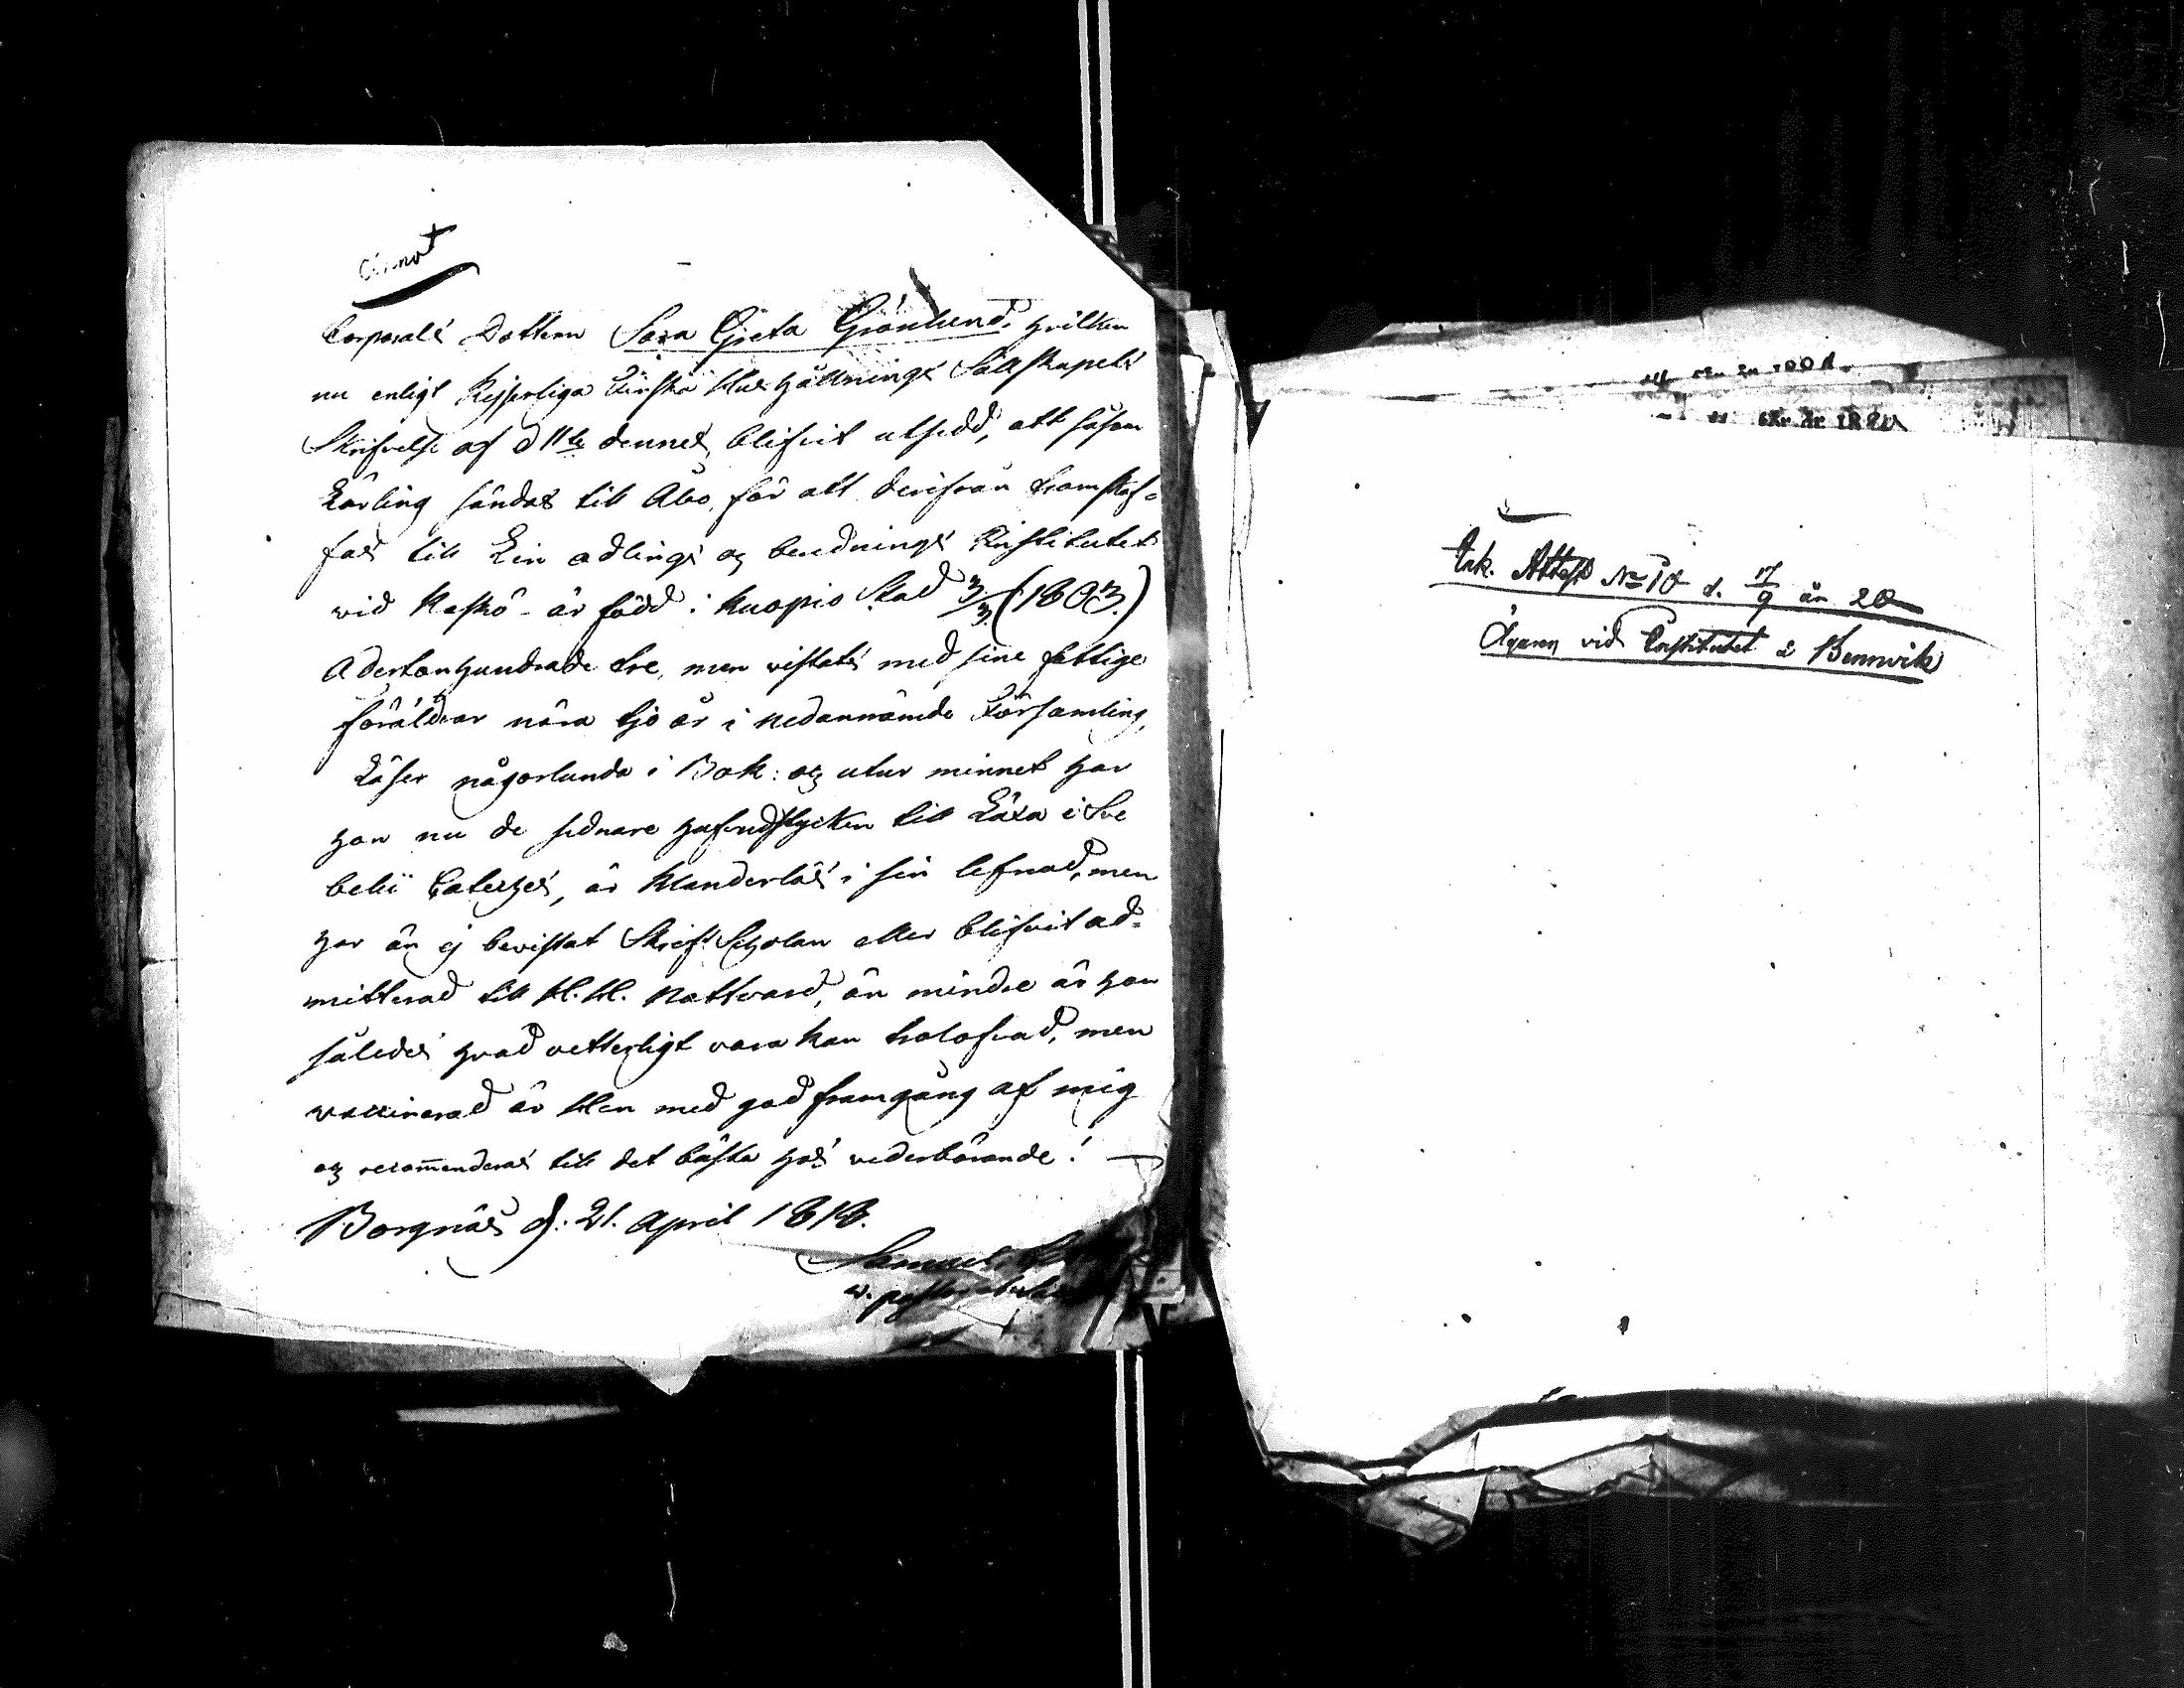 Corporals Dottern Sara Greta Grönlund, hvilken
nu enligt Kejserliga Finska Hushållnings Sällskapets
Skrifvelse af d 11te dennes, blifvit utsedd, att såsom
Lärling sändas till Åbo, för att derifrån framskaf-
fas till Lin odlings och berednings Institutet
vid Kaskö - är född i Kuopio Stad 3/3 (1803.)
Adertonhundrade tre, men vistats med sine fattige
föräldrar nära tjo år i nedannämde Församling,
Läser någorlunda i Bok: och utur minnet har
hon nu de sednare hufvudstycken till Läxa i Sve
belii Cateches, är klanderlös i sin lefnad, men
har än ej bevistat Skrift Scholan eller blifvit ad-
mitterad till H. H. Nattvard, än mindre är hon
således hvad vetterligt vara kan trolofvad, men
vaccinerad är Hon med god framgång af mig
och recom̄enderas till det bästa hos vederbörande!
Borgnäs d: 21. April 1818.
Samuel
v. pastor
Ink. Attest No 10 d. 17/9 år 20
Ägaren vid Institutet å Bennvik